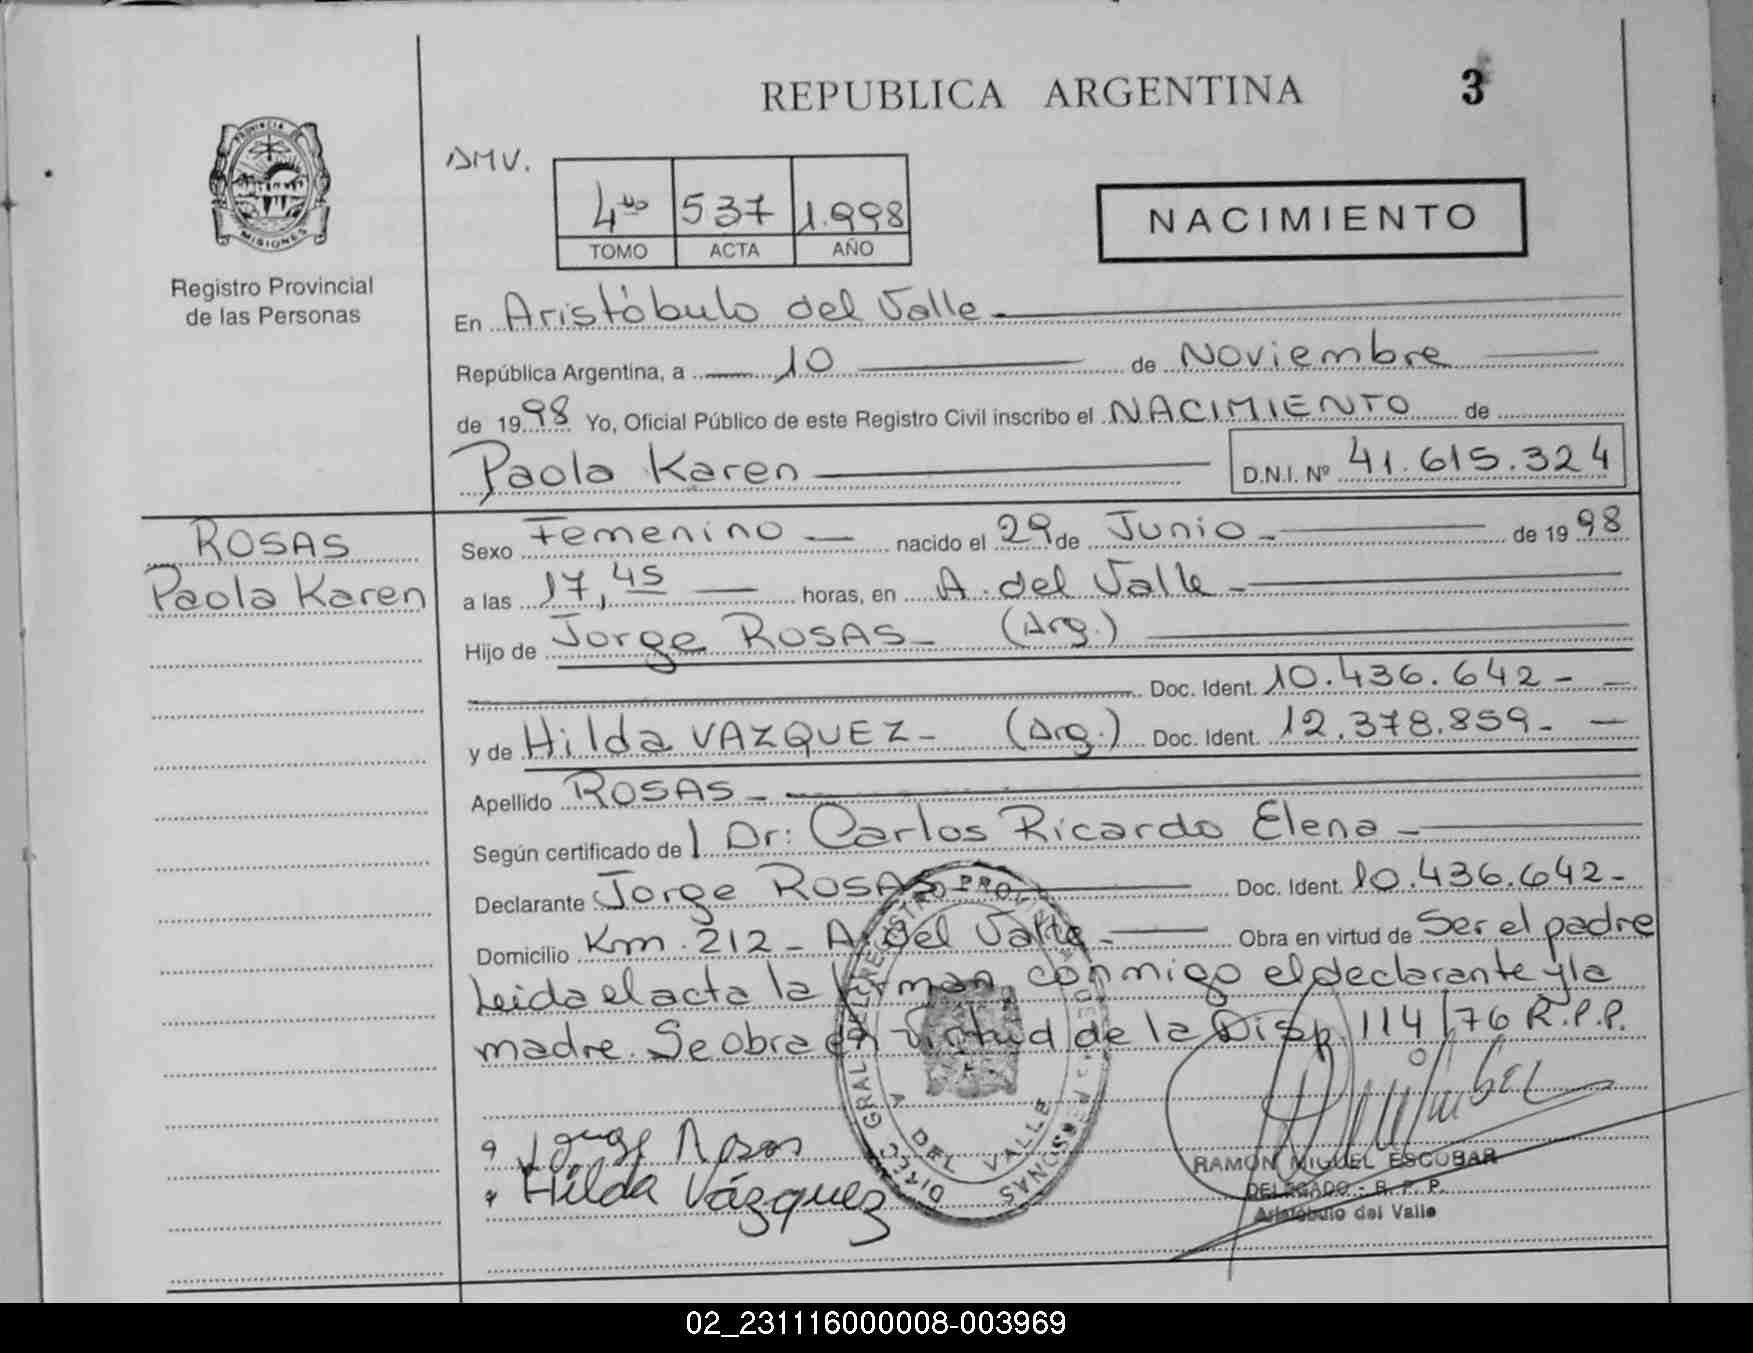 REPUBLICA ARGENTINA 3
PROVINCIA DE
MISIONES
Registro Provincial
de las Personas
DMV.
4to 537 1.998
TOMO ACTA AÑO
NACIMIENTO
En Aristóbulo del Valle
República Argentina, a 10 de Noviembre
de 1998 Yo, Oficial Público de este Registro Civil inscribo el NACIMIENTO de
Paola Karen D.N.I. Nº 41.615.324
ROSAS
Paola Karen
Sexo Femenino nacido el 29 de Junio de 1998
a las 17,45 horas, en A. del Valle
Hijo de Jorge ROSAS (Arg.)
Doc. Ident. 10.436.642
y de Hilda VAZQUEZ (Arg.) Doc. Ident. 12.378.859
Apellido ROSAS
Según certificado de l Dr: Carlos Ricardo Elena
Declarante Jorge ROSAS Doc. Ident. 10.436.642
Domicilio Km. 212 - A. del Valle Obra en virtud de Ser el padre
Leida el acta la firman, conmigo el declarante y la
madre. Se obra en virtud de la Disp. 114/76 R.P.P.
Jorge Rosas
Hilda Vázquez
DIREC. GRAL. DEL REGISTRO PROV. DE LAS PERSONAS
A. DEL VALLE
RAMON MIGUEL ESCOBAR
DELEGADO - R. P. P.
Aristóbulo del Valle
02_231116000008-003969